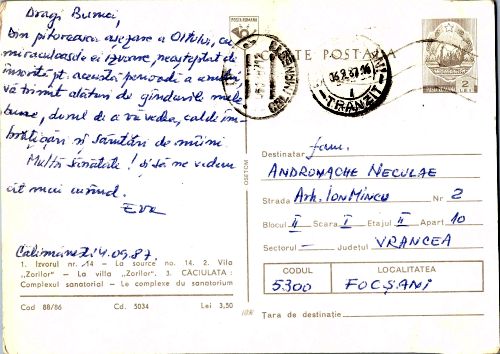 Dragi Bunici,
Din pitoreasca așezare a Oltului, cu
miraculoasele ei izvoare, neașteptat de
însorită pt. această perioadă a anului
vă trimit alături de gîndurile mele
bune, dorul de a vă vedea, calde îm-
brățișări și sărutări de mîini.
Multă sănătate! și să ne vedem
cît mai curînd.
Eva
Călimănești 4.09.87.
1. Izvorul nr. 14 — La source no. 14. 2. Vila
„Zorilor" — La villa „Zorilor". 3. CĂCIULATA:
Complexul sanatorial — Le complexe du sanatorium
Cod 88/86 Cd. 5034 Lei 3,50
OSETCM
POSTA ROMANA
CARTE POȘTALĂ
TRANZIT
POSTA ROMANA
Destinatar fam.
ANDROMACHE NECULAE
Strada Arh. ION MINCU Nr 2
Blocul II Scara I Etajul II Apart 10
Sectorul — Județul VRANCEA
CODUL LOCALITATEA
5300 FOCȘANI
Tara de destinație